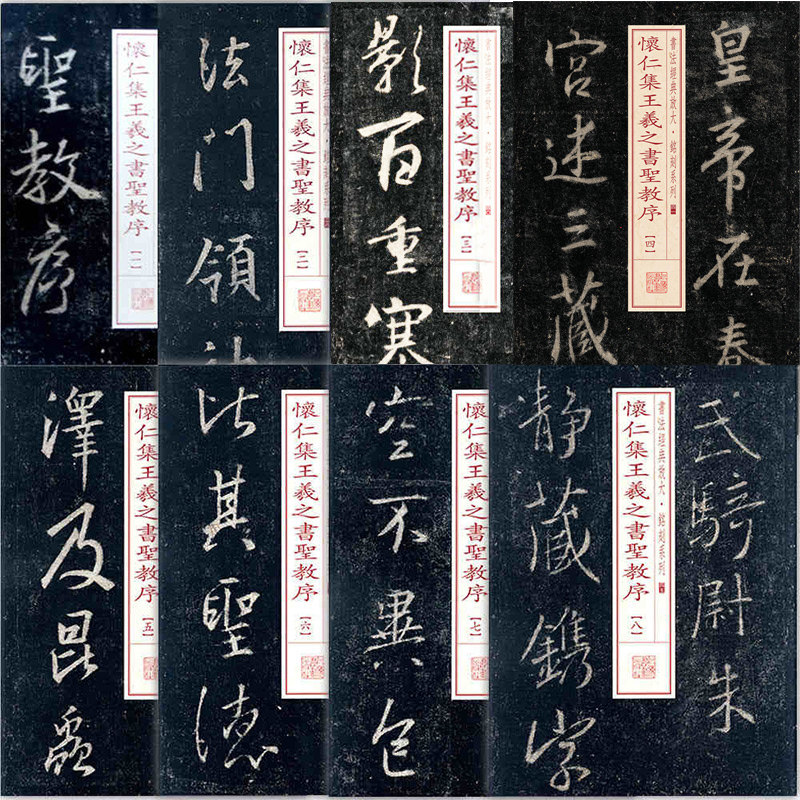 懷仁集王羲之書聖教序【一】
聖教序
書法經典放大·銘刻系列
懷仁集王羲之書聖教序【二】
法門領
書法經典放大·銘刻系列
懷仁集王羲之書聖教序【三】
影百重寒
皇帝在春
書法經典放大·銘刻系列
懷仁集王羲之書聖教序【四】
宮述三藏
懷仁集王羲之書聖教序【五】
澤及昆蟲
懷仁集王羲之書聖教序【六】
比其聖德
懷仁集王羲之書聖教序【七】
空不異色
武騎尉朱
書法經典放大·銘刻系列
懷仁集王羲之書聖教序【八】
静藏鐫字